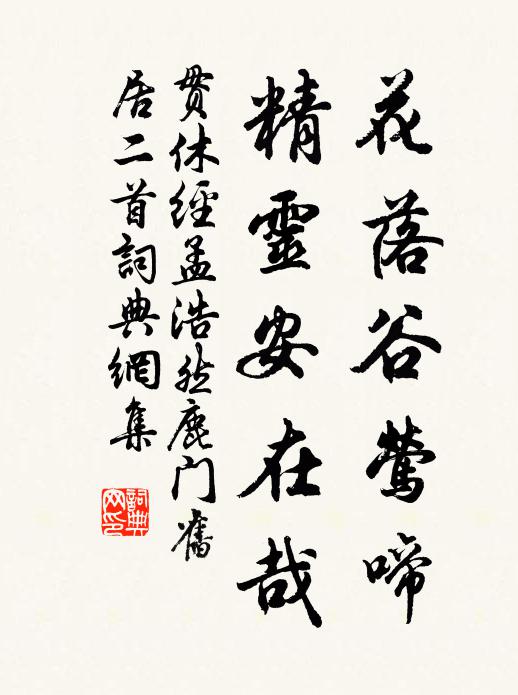 花落谷鶯啼
精靈安在哉
貫休經孟浩然鹿門舊
居二首詞典網集
詞典
网印